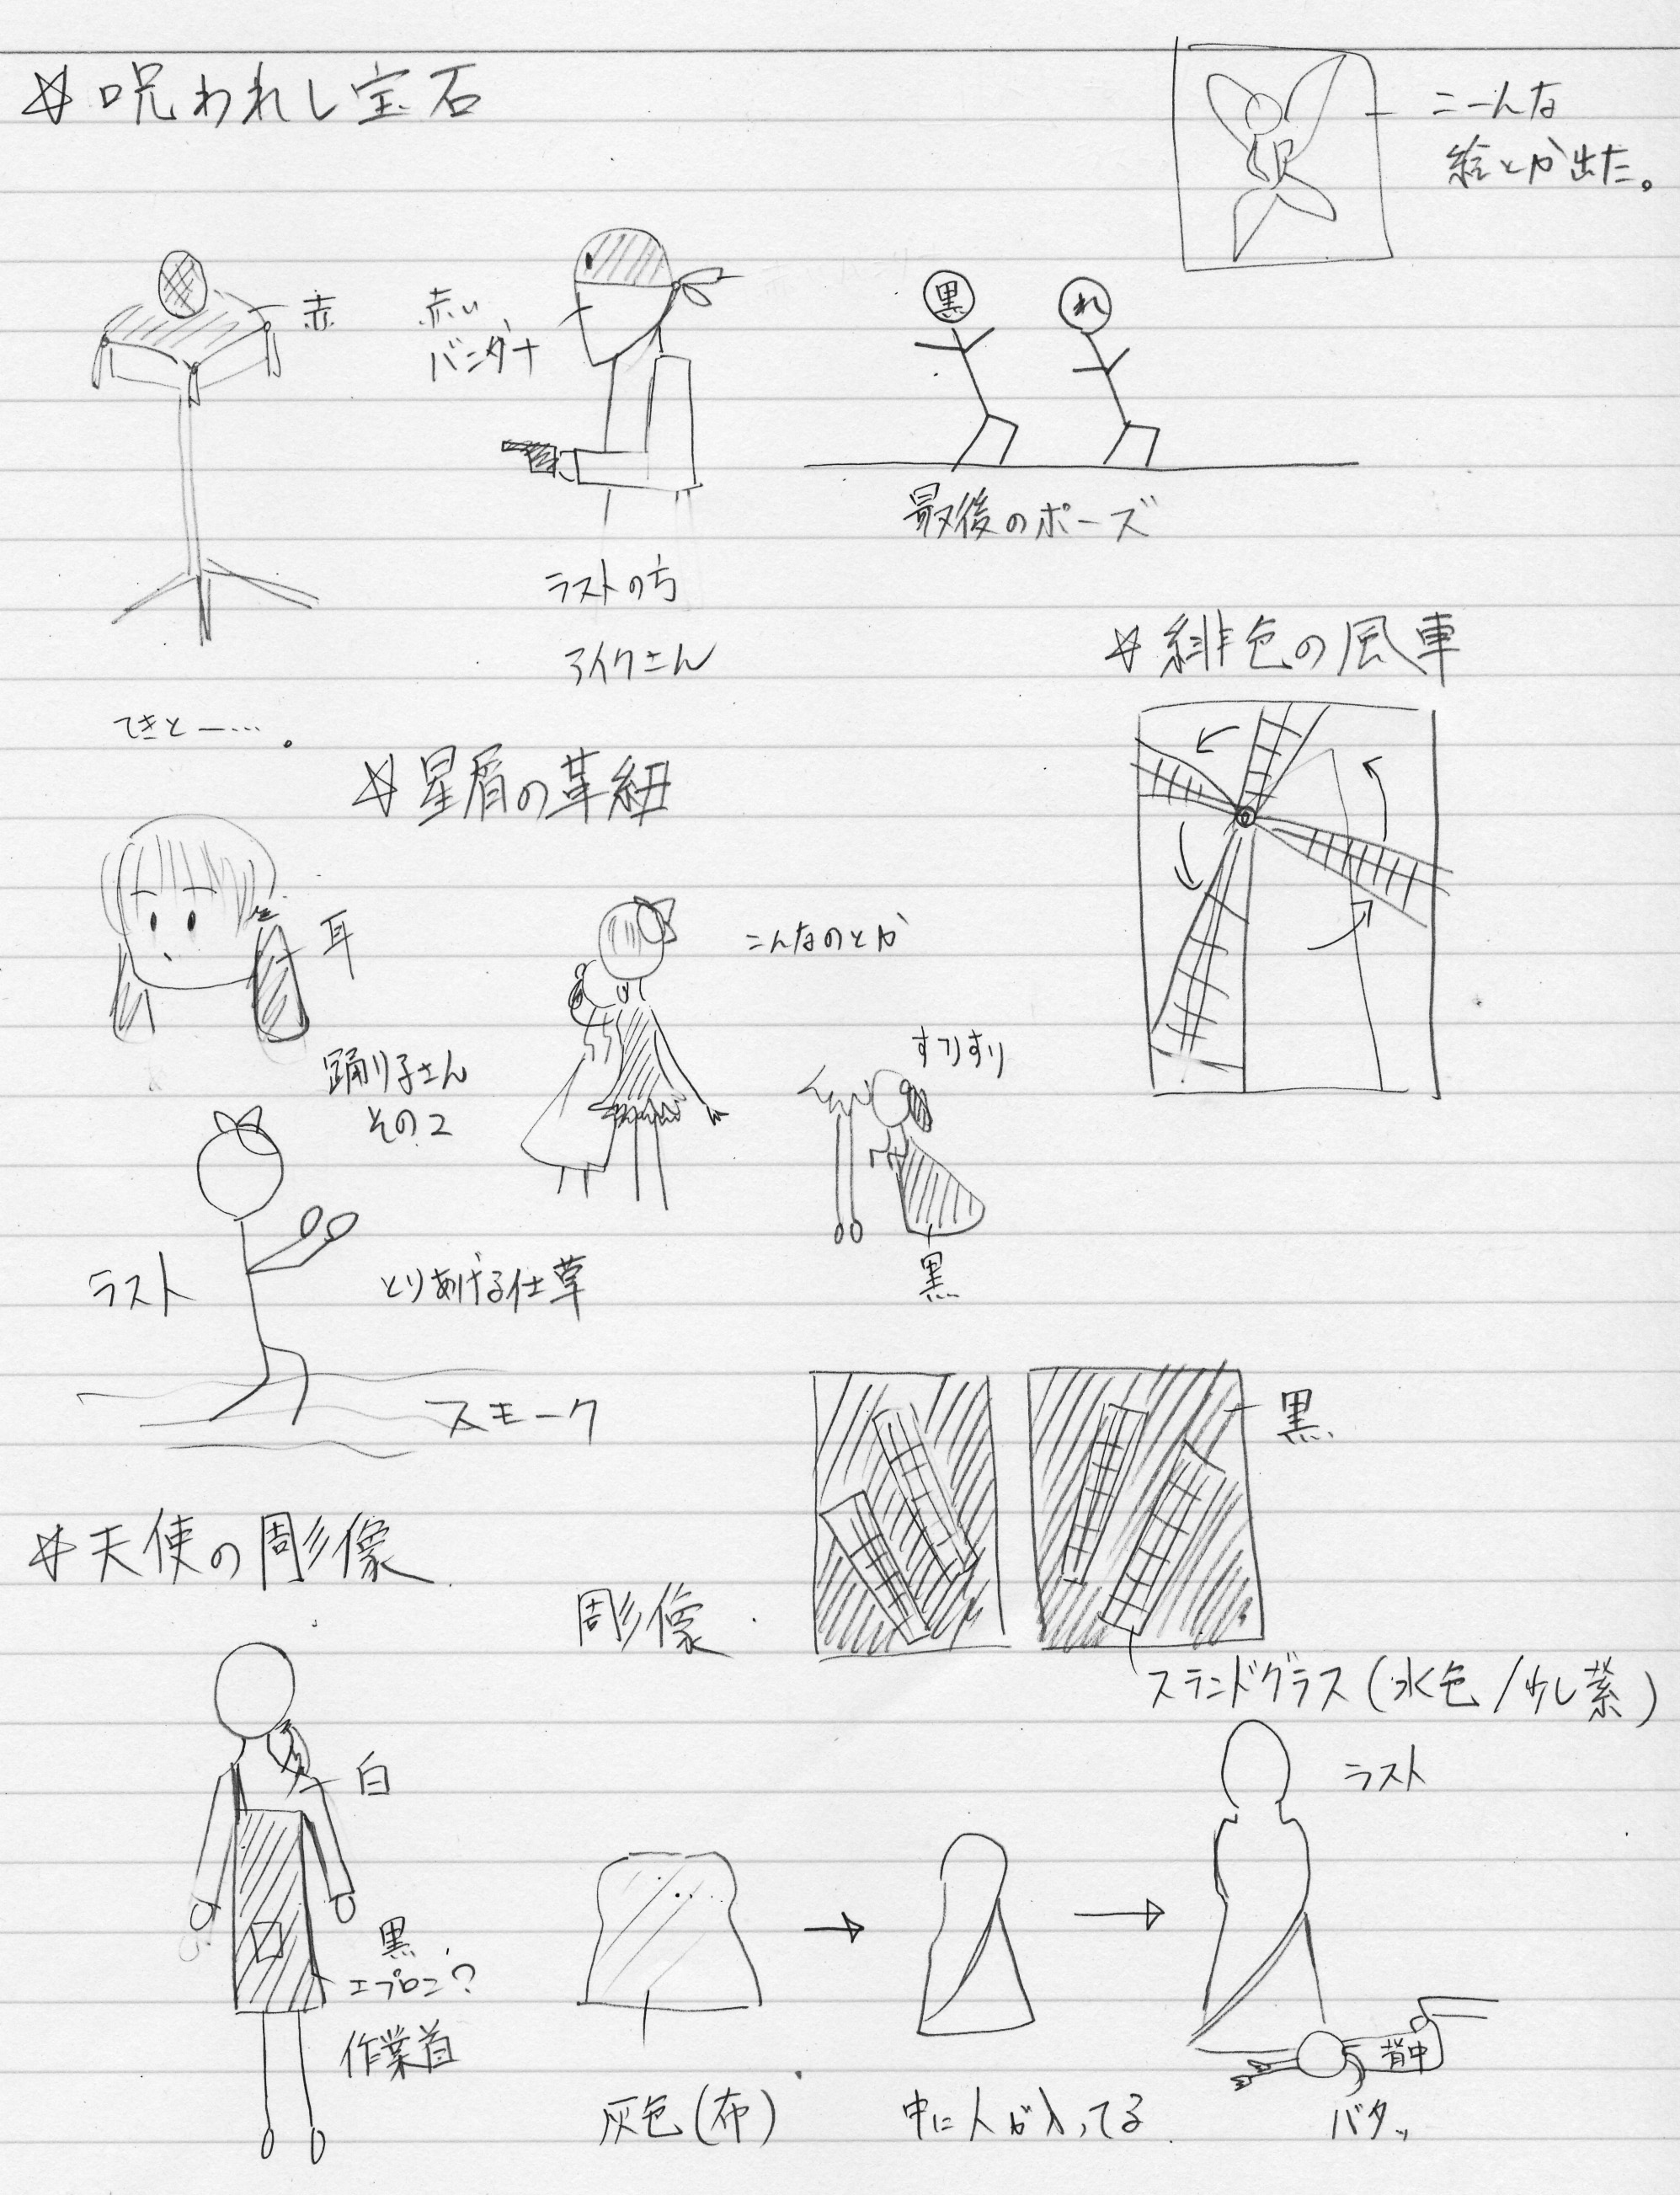 ☆呪われし宝石
こーんな
絵とか出た。
赤
赤い
バンダナ
黒
れ
最後のポーズ
ラストの方
アイクさん
☆緋色の風車
てきとー…。
☆星屑の革紐
耳
こんなのとか
踊り子さん
その2
すりすり
黒
ラスト
とりあげる仕草
スモーク
黒
☆天使の彫像
彫像
ステンドグラス(水色/少し紫)
ラスト
白
黒
エプロン?
作業着
背中
灰色(布)
中に人が入ってる
バタッ